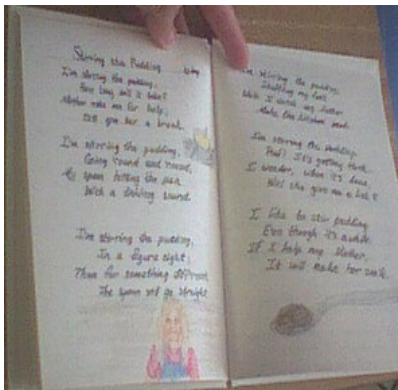 Stirring the Pudding
I'm stirring the pudding,
How long will it take?
Mother asks me for help,
To give her a break.
I'm stirring the pudding,
Going 'round and 'round,
My spoon hitting the pan
With a clinking sound.
I'm stirring the pudding,
In a figure eight;
Then for something different
The spoon will go straight.
I'm stirring the pudding,
Shuffling my feet
While I watch my Mother
Make the kitchen neat.
I'm stirring the pudding.
Phew! It's getting thick.
I wonder, when it's done,
Will she give me a lick?
I like to stir pudding
Even though it's awhile.
If I help my Mother,
It will make her smile.